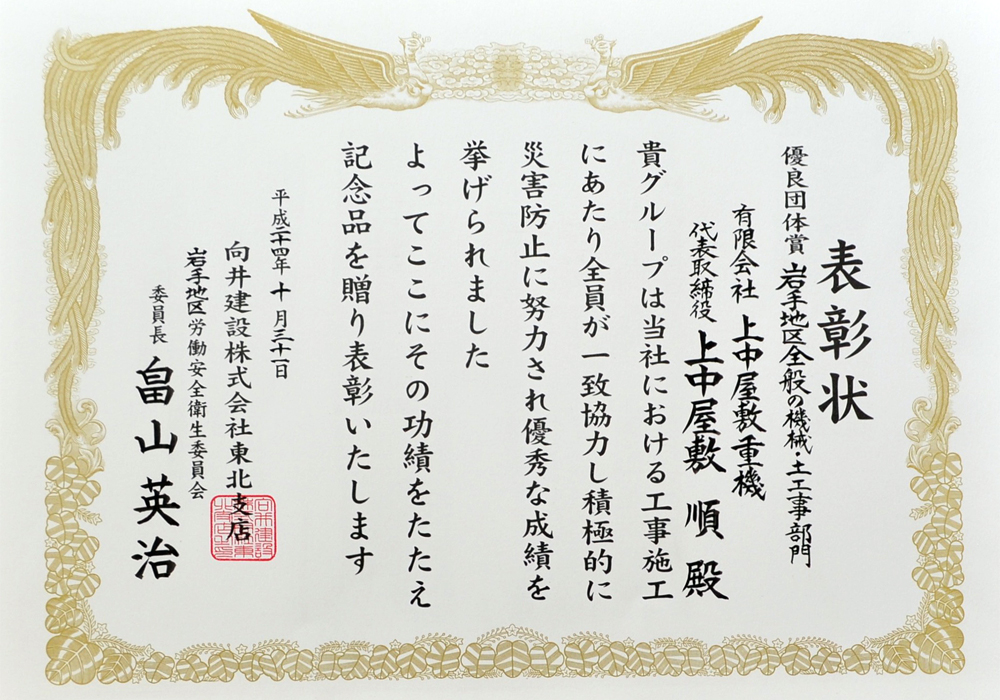 表彰状
優良団体賞 岩手地区全般の機械・土工事部門
有限会社 上中屋敷重機
代表取締役 上中屋敷 順 殿
貴グループは当社における工事施工
にあたり全員が一致協力し積極的に
災害防止に努力され優秀な成績を
挙げられました
よってここにその功績をたたえ
記念品を贈り表彰いたします
平成二十四年 十月三十一日
向井建設株式会社東北支店
岩手地区労働安全衛生委員会
委員長 畠山英治